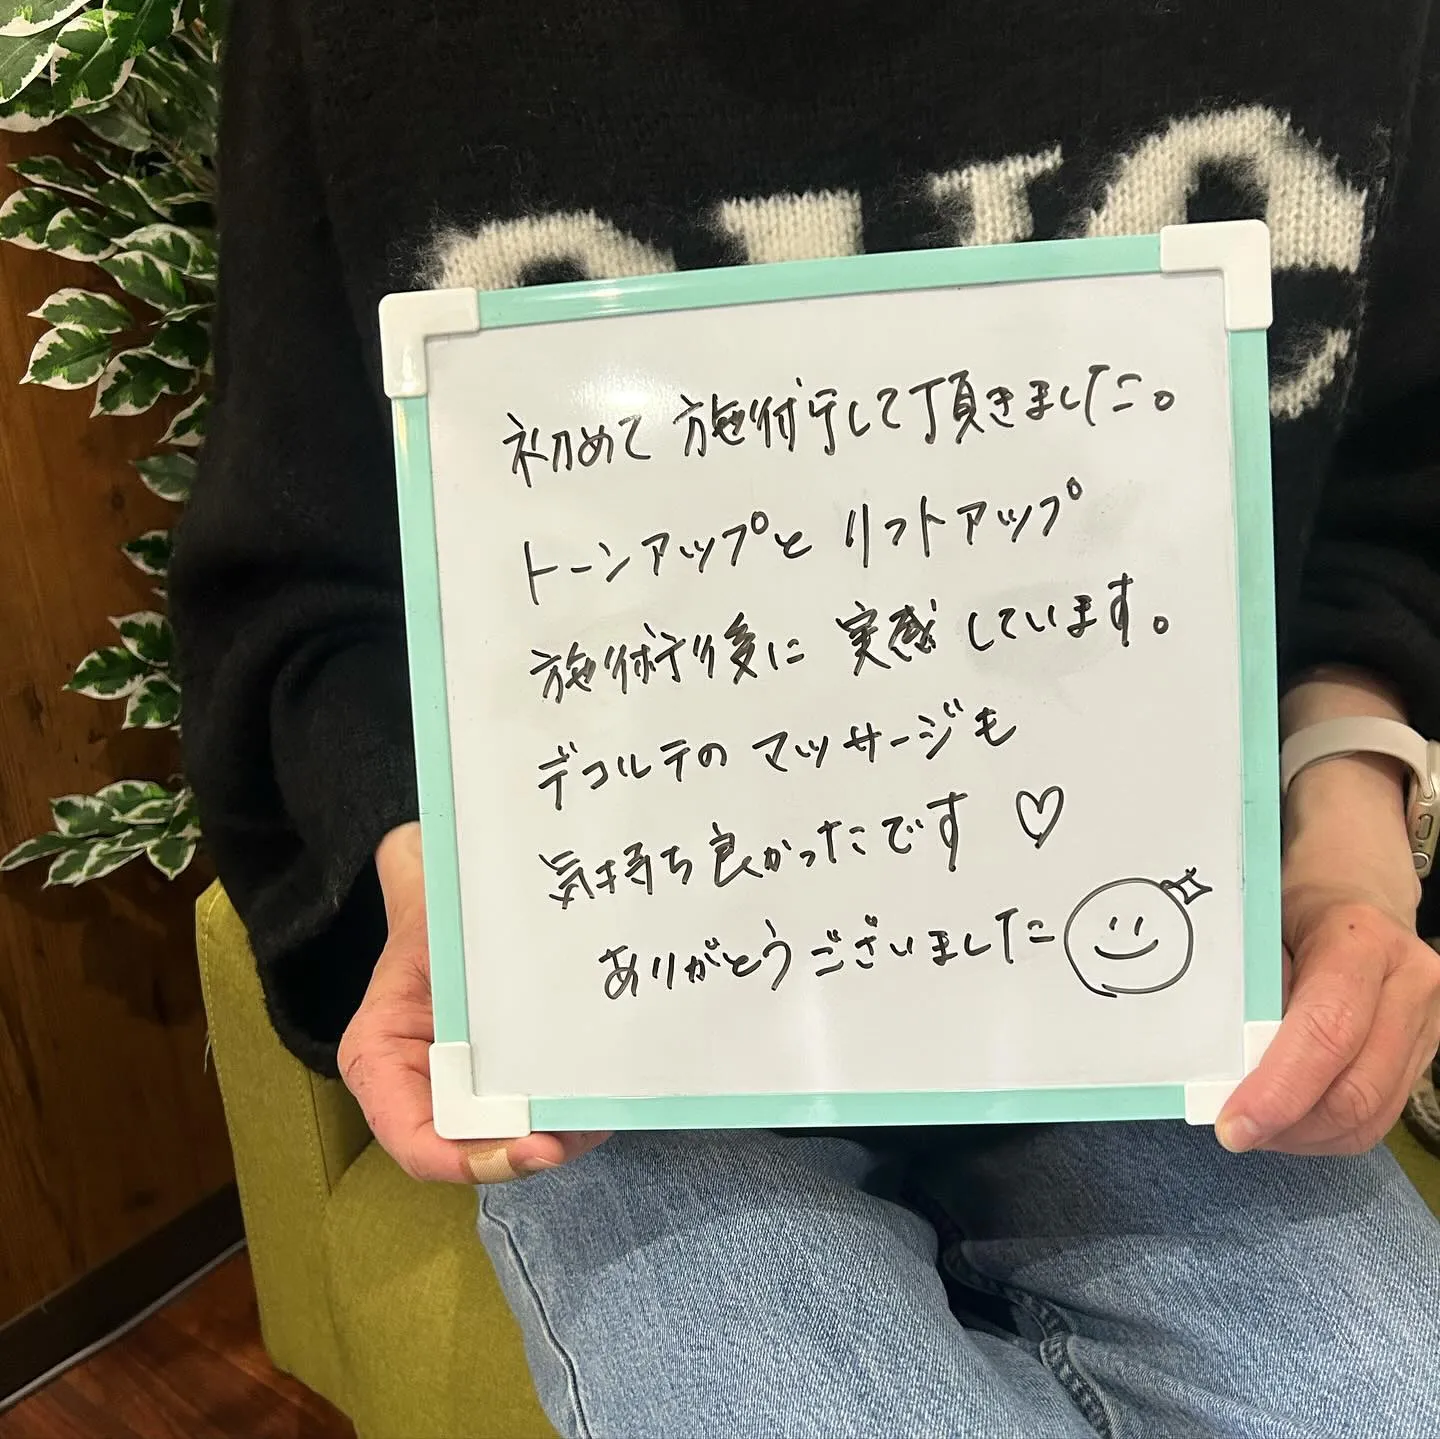 初めて施術して頂きました。
トーンアップとリフトアップ
施術後に実感しています。
デコルテのマッサージも
気持ち良かったです♡
ありがとうございました